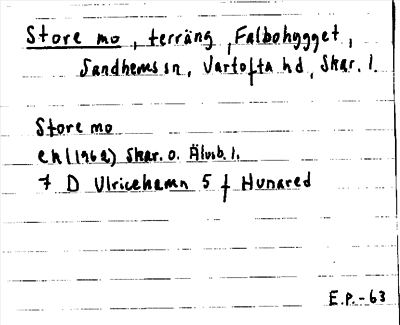 Store mo, terräng, Falbohygget,
Sandhems sn, Vartofta hd, Skar. l.
Store mo
ek (1962) Skar. o. Älvsb. l.
7 D Ulricehamn 5 f Hunared
E.P.-63